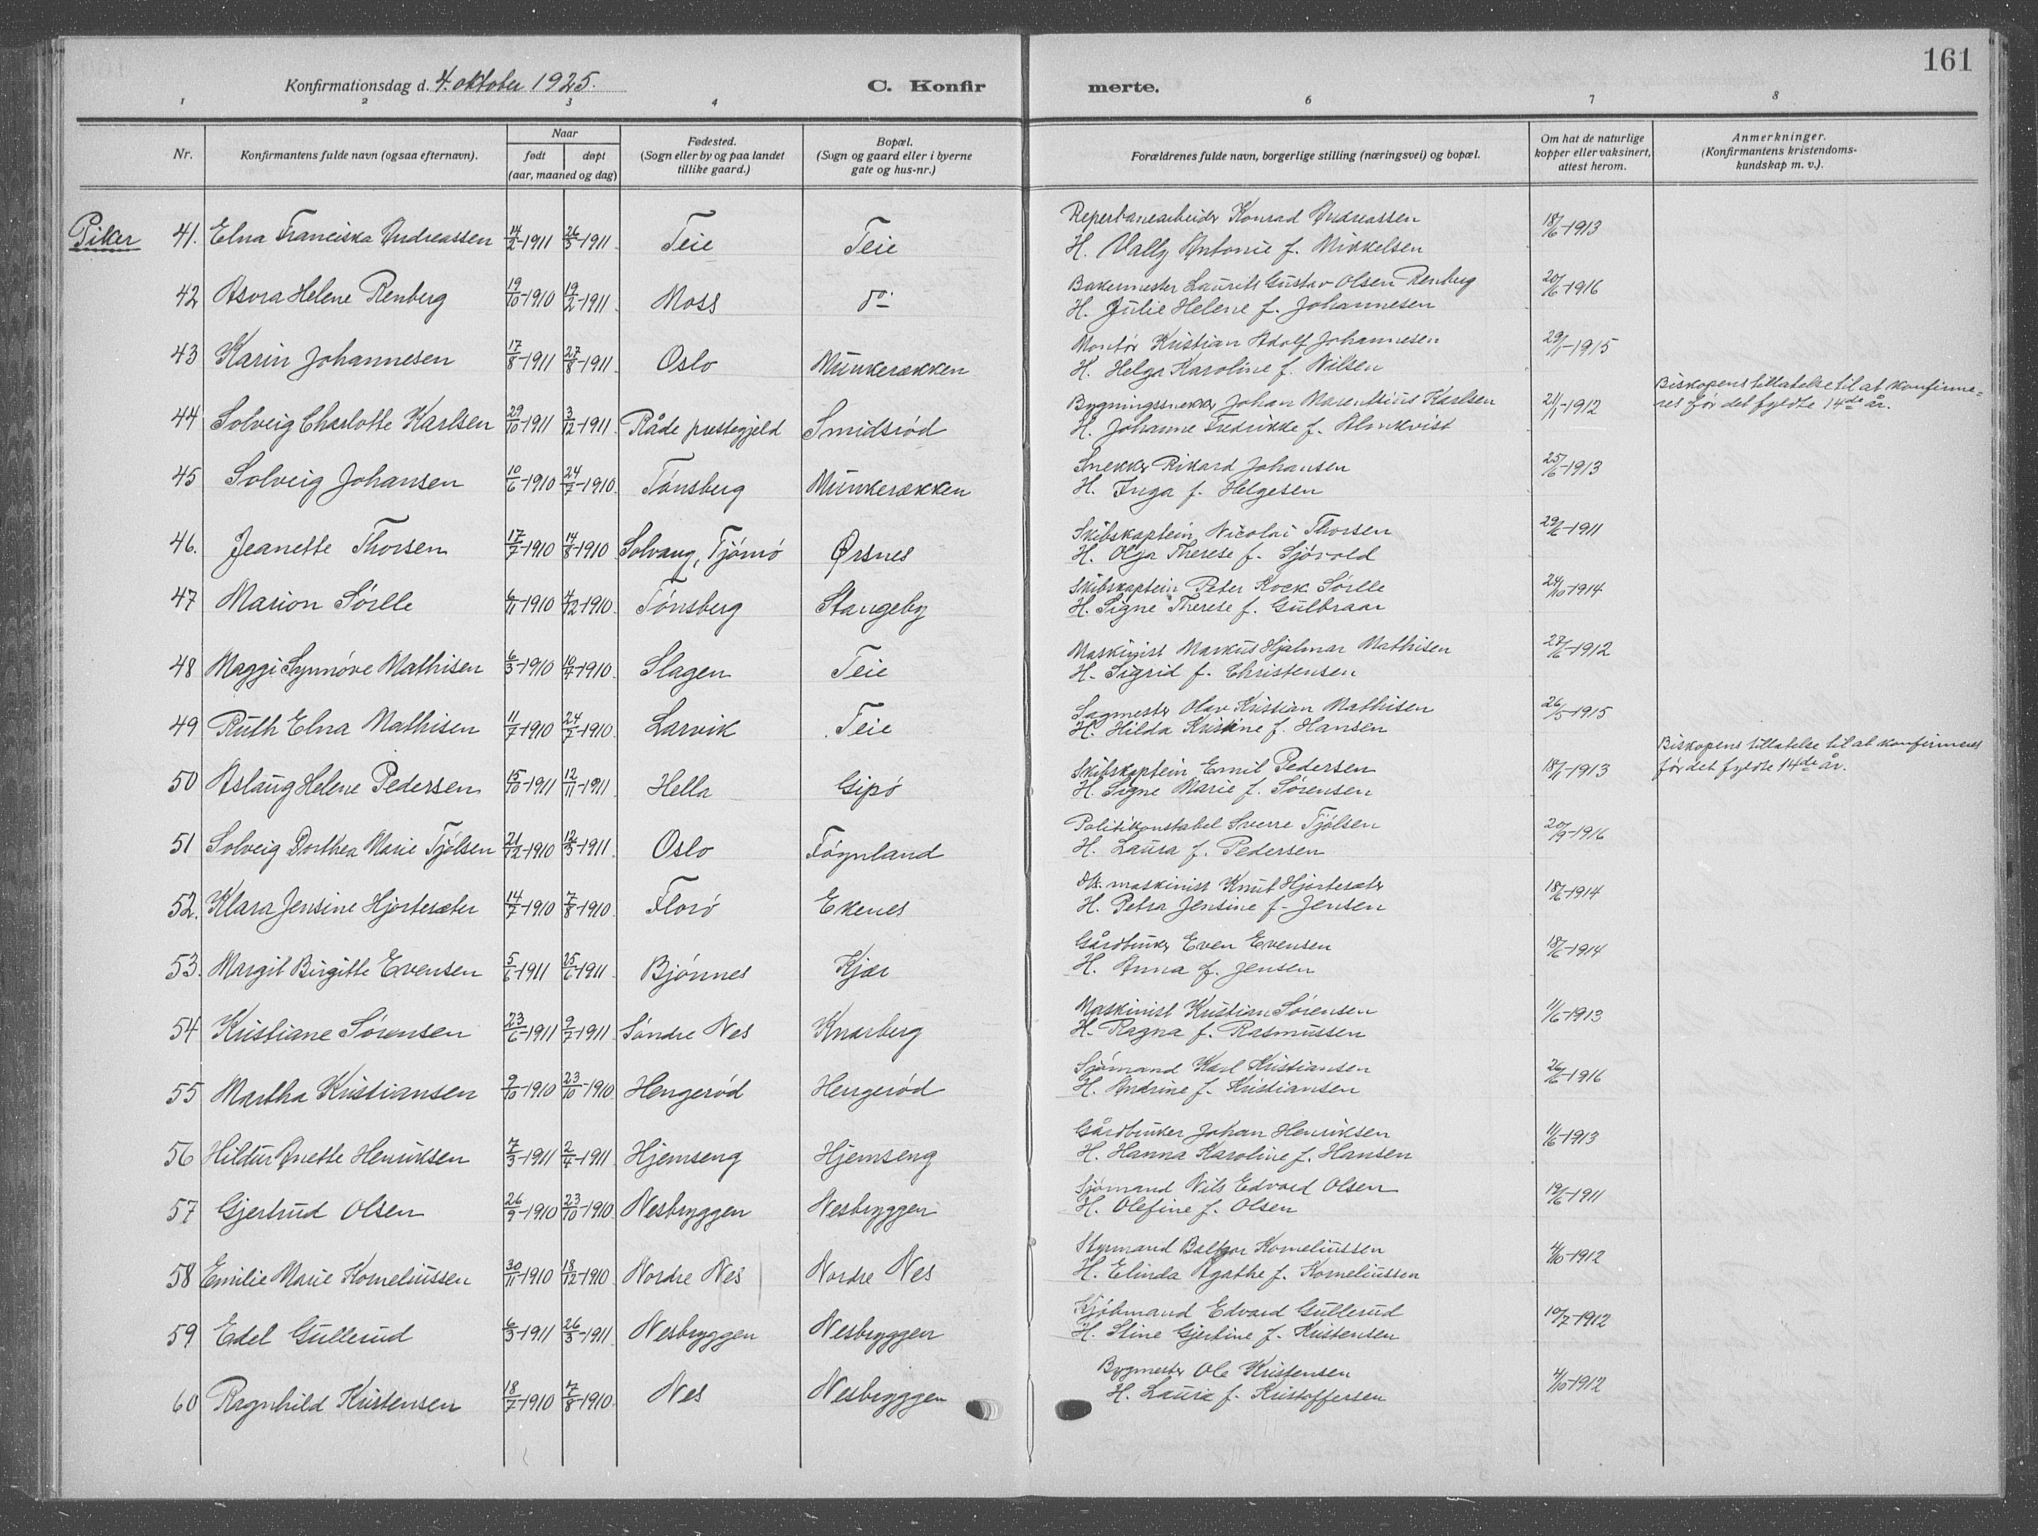 161
Konfirmationsdag d. 4. oktober 1925.
C. Konfirmerte.
1 2 3 4 6 7 8
Nr.
Konfirmantens fulde navn (ogsaa efternavn).
Naar
født døpt
(aar, maaned og dag)
Fødested.
(Sogn eller by og paa landet
tillike gaard.)
Bopæl.
(Sogn og gaard eller i byerne
gate og hus-nr.)
Forældrenes fulde navn, borgerlige stilling (næringsvei) og bopæl.
Om hat de naturlige
kopper eller vaksinert,
attest herom.
Anmerkninger.
(Konfirmantens kristendoms-
kundskap m. v.).
Piker
41. Elna Franciska Andreassen 14/2-1911 26/3-1911 Teie Teie
Reperbanearbeider Konrad Andreassen 18/6-1913
H. Vally Antonie f. Mikkelsen
42 Asora Helene Renberg 19/10-1910 19/2-1911 Moss do
Bakermester Laurits Gustav Olsen Renberg 20/6-1916
H. Julie Helene f. Johannesen
43 Karin Johannesen 17/8-1911 27/8-1911 Oslo Munkerækken
Montør Kristian Adolf Johannesen 29/1-1915
H. Helga Karoline f. Nilsen
44 Solveig Charlotte Karlsen 29/10-1911 3/12-1911 Råde prestegjeld Smidsrød
Bygningssnekker Johan Marentius Karlsen 21/1-1912
H. Johanne Fredrikke f. Almkvist
Biskopens tillatelse til at konfirme-
res før det fyldte 14de år.
45 Solveig Johansen 10/6-1910 24/7-1910 Tønsberg Munkerækken
Snekker Rikard Johansen 25/6-1913
H. Inga f. Helgesen
46. Jeanette Thorsen 17/7-1910 14/8-1910 Solvang, Tjømø Ørsnes
Skibskaptein Nicolai Thorsen 29/6-1911
H. Olga Therese f. Sjövold
47 Marion Sørlle 6/11-1910 4/12-1910 Tønsberg Stangeby
Skibskaptein Peter Rock Sørlle 24/10-1914
H. Signe Therese f. Gulbraar
48 Maggi Synnøve Mathisen 6/3-1910 10/4-1910 Slagen Teie
Maskinist Markus Hjalmar Mathisen 27/6-1912
H. Sigrid f. Christensen
49 Ruth Elna Mathisen 11/7-1910 24/7-1910 Larvik Teie
Sagmester Olav Kristian Mathisen 26/5-1915
H. Hilda Kristine f. Hansen
50 Aslaug Helene Pedersen 15/10-1911 12/11-1911 Hella Gipø
Skibskaptein Emil Pedersen 18/1-1913
H. Signe Marie f. Sørensen
Biskopens tillatelse til at konfirmeres
før det fyldte 14de år.
51 Solveig Dorthea Marie Tjølsen 21/12-1910 12/3-1911 Oslo Føynland
Politikonstabel Sverre Tjølsen 20/9-1916
H. Laura f. Pedersen
52. Klara Jensine Hjorteseter 14/7-1910 7/8-1910 Florø Ekenes
maskinist Knut Hjorteseter 18/6-1914
H. Petra Jensine f. Jensen
53. Margit Birgitte Evensen 5/6-1911 25/6-1911 Bjønnes Kjær
Gårdbruker Even Evensen 18/6-1914
H. Anna f. Jensen
54 Kristiane Sørensen 23/6-1911 9/7-1911 Søndre Nes Knarberg
Maskinist Kristian Sørensen 11/6-1913
H. Ragna f. Rasmussen
55 Martha Kristiansen 9/10-1910 23/10-1910 Hengerød Hengerød
Sjømand Karl Kristiansen 26/6-1916
H. Andrine f. Kristiansen
56 Hildur Anette Henriksen 7/3-1911 2/4-1911 Hjemseng Hjemseng
Gårdbruker Johan Henriksen 11/6-1913
H. Hanna Karoline f. Hansen
57 Gjertrud Olsen 26/9-1910 23/10-1910 Nesbryggen Nesbryggen
Sjømand Nils Edvard Olsen 19/6-1911
H. Olefine f. Olsen
58 Emilie Marie Korneliussen 30/11-1910 18/12-1910 Nordre Nes Nordre Nes
Styrmand Baltzar Korneliussen 4/10-1912
H. Elinda Agathe f. Korneliussen
59 Edel Gullerud 6/3-1911 26/3-1911 Nesbryggen Nesbryggen
Kjøbmand Edvard Gullerud 10/7-1912
H. Stine Gjertine f. Kristensen
60 Ragnhild Kristensen 18/7-1910 7/8-1910 Nes Nesbryggen
Bygmester Ole Kristensen 4/10-1912
H. Laura f. Kristoffersen